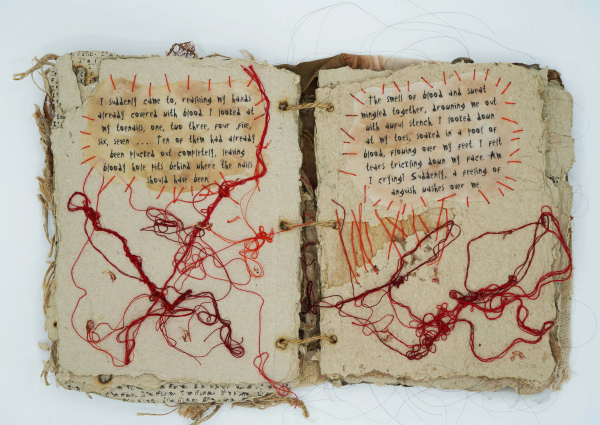 I suddenly came to, realising my hands
already covered with blood. I looked at
my toenails, one, two three, four, five,
six, seven .... Ten of them had already
been plucked out completely, leaving
bloody hole pits behind where the nails
should have been.
The smell of blood and sweat
mingled together, drowning me out
with awful stench. I looked down
at my toes, soaked in a pool of
blood, flowing over my feet. I felt
tears trickling down my face. Am
I crying? Suddenly, a feeling of
anguish washes over me.